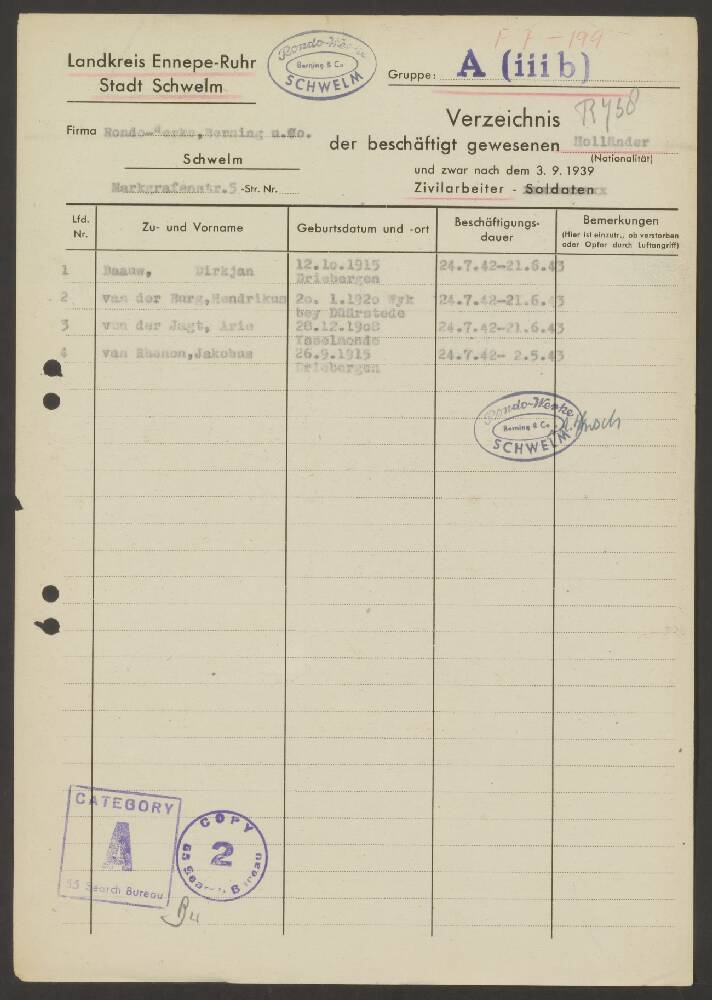 Landkreis Ennepe-Ruhr
Stadt Schwelm
Rondo-Werke
Berning & Co.
SCHWELM
F 7 - 199
Gruppe: A (iii b)
Verzeichnis
der beschäftigt gewesenen Holländer
(Nationalität)
und zwar nach dem 3. 9. 1939
Zivilarbeiter - Soldaten
Firma Rondo-Werke, Berning u.Co.
Schwelm
Markgrafenstr.5 -Str. Nr.
Lfd. Nr.
Zu- und Vorname
Geburtsdatum und -ort
Beschäftigungsdauer
Bemerkungen
(Hier ist einzutr., ob verstorben
oder Opfer durch Luftangriff)
1 Baauw, Dirkjan 12.10.1915 24.7.42-21.6.43
Driebergen
2 van der Burg, Hendrikus 20. 1.1920 Wyk 24.7.42-21.6.43
bey Düürstede
3 van der Jagt, Arie 28.12.1908 24.7.42-21.6.43
Ysselmonde
4 van Rhenon, Jakobus 26.9.1915 24.7.42- 2.5.43
Driebergen
Rondo-Werke
Berning & Co.
SCHWELM
CATEGORY
A
55 Search Bureau
COPY
2
55 Search Bureau